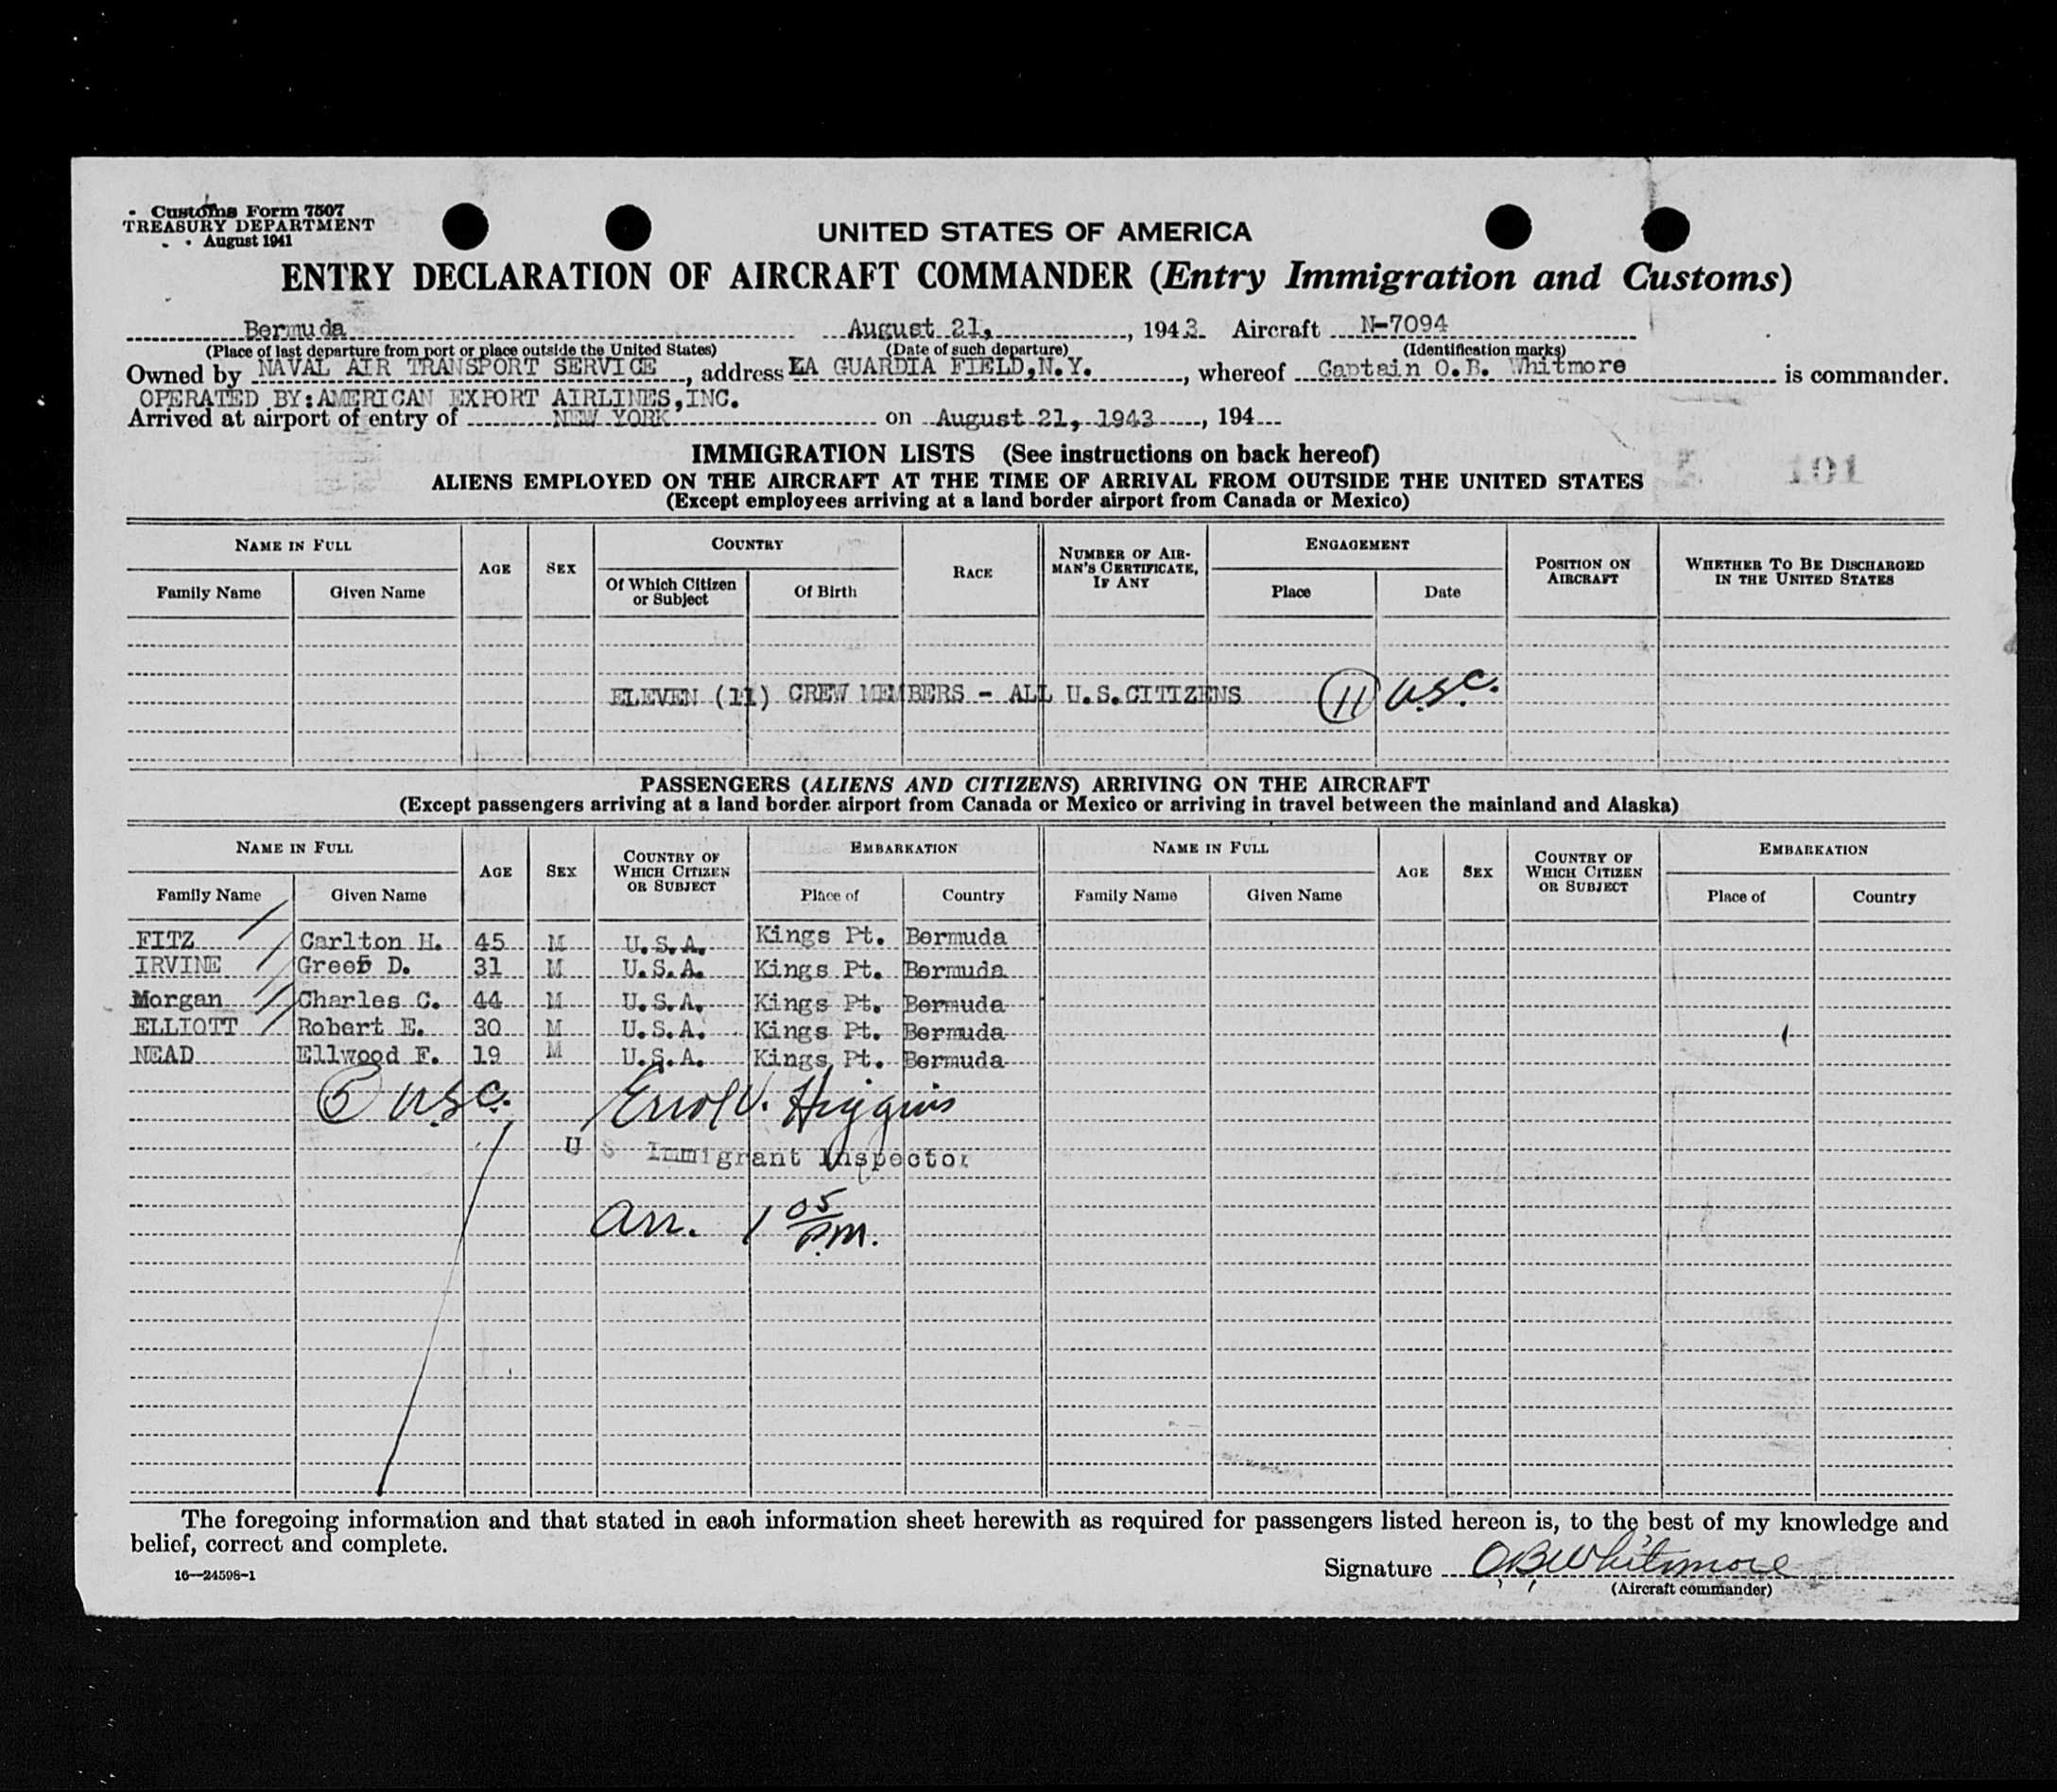 Customs Form 7507
TREASURY DEPARTMENT
August 1941
UNITED STATES OF AMERICA
ENTRY DECLARATION OF AIRCRAFT COMMANDER (Entry Immigration and Customs)
Bermuda August 21, 1943 Aircraft N-7094
(Place of last departure from port or place outside the United States) (Date of such departure) (Identification marks)
Owned by NAVAL AIR TRANSPORT SERVICE, address LA GUARDIA FIELD,N.Y., whereof Captain O.B. Whitmore is commander.
OPERATED BY:AMERICAN EXPORT AIRLINES,INC.
Arrived at airport of entry of NEW YORK on August 21, 1943, 194
IMMIGRATION LISTS (See instructions on back hereof)
101
ALIENS EMPLOYED ON THE AIRCRAFT AT THE TIME OF ARRIVAL FROM OUTSIDE THE UNITED STATES
(Except employees arriving at a land border airport from Canada or Mexico)
NAME IN FULL AGE SEX COUNTRY RACE NUMBER OF AIRMAN'S CERTIFICATE, IF ANY ENGAGEMENT POSITION ON AIRCRAFT WHETHER TO BE DISCHARGED IN THE UNITED STATES
Family Name Given Name Of Which Citizen or Subject Of Birth Place Date
ELEVEN (11) CREW MEMBERS - ALL U.S.CITIZENS 11 USC.
PASSENGERS (ALIENS AND CITIZENS) ARRIVING ON THE AIRCRAFT
(Except passengers arriving at a land border airport from Canada or Mexico or arriving in travel between the mainland and Alaska)
NAME IN FULL AGE SEX COUNTRY OF WHICH CITIZEN OR SUBJECT EMBARKATION NAME IN FULL AGE SEX COUNTRY OF WHICH CITIZEN OR SUBJECT EMBARKATION
Family Name Given Name Place of Country Family Name Given Name Place of Country
FITZ Carlton H. 45 M U.S.A. Kings Pt. Bermuda
IRVINE D. 31 M U.S.A. Kings Pt. Bermuda
Morgan Charles C. 44 M U.S.A. Kings Pt. Bermuda
ELLIOTT Robert E. 30 M U.S.A. Kings Pt. Bermuda
NEAD Ellwood F. 19 M U.S.A. Kings Pt. Bermuda
5 USC. Errol V. Higgins
U S Immigrant Inspector
Arr. 1 05 P.M.
The foregoing information and that stated in each information sheet herewith as required for passengers listed hereon is, to the best of my knowledge and
belief, correct and complete.
16—24598-1
Signature OBWhitmore
(Aircraft commander)